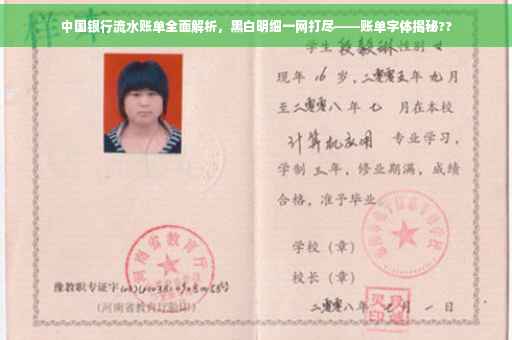 中国银行流水账单全面解析，黑白明细一网打尽——账单字体揭秘??
样本
学生 段毅琳 性别 女
现年 16 岁，二零零五年 九月
至二零零八年 七 月在本校
计算机应用 专业学习，
学制 三年，修业期满，成绩
合格，准予毕业
学校（章）
校长（章）
河南省教育厅
豫教职专证字
（河南省教育厅验印）
二零零八年 月 一 日